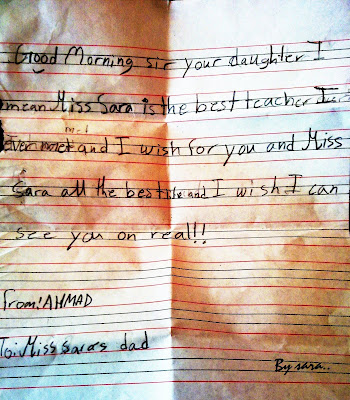 Good Morning sir your daughter I
mean Miss Sara is the best teacher I
Ever met and I wish for you and Miss
Sara all the best life and I wish I can
see you on real!!
From: AHMAD
To: Miss Sara's dad
By sara..